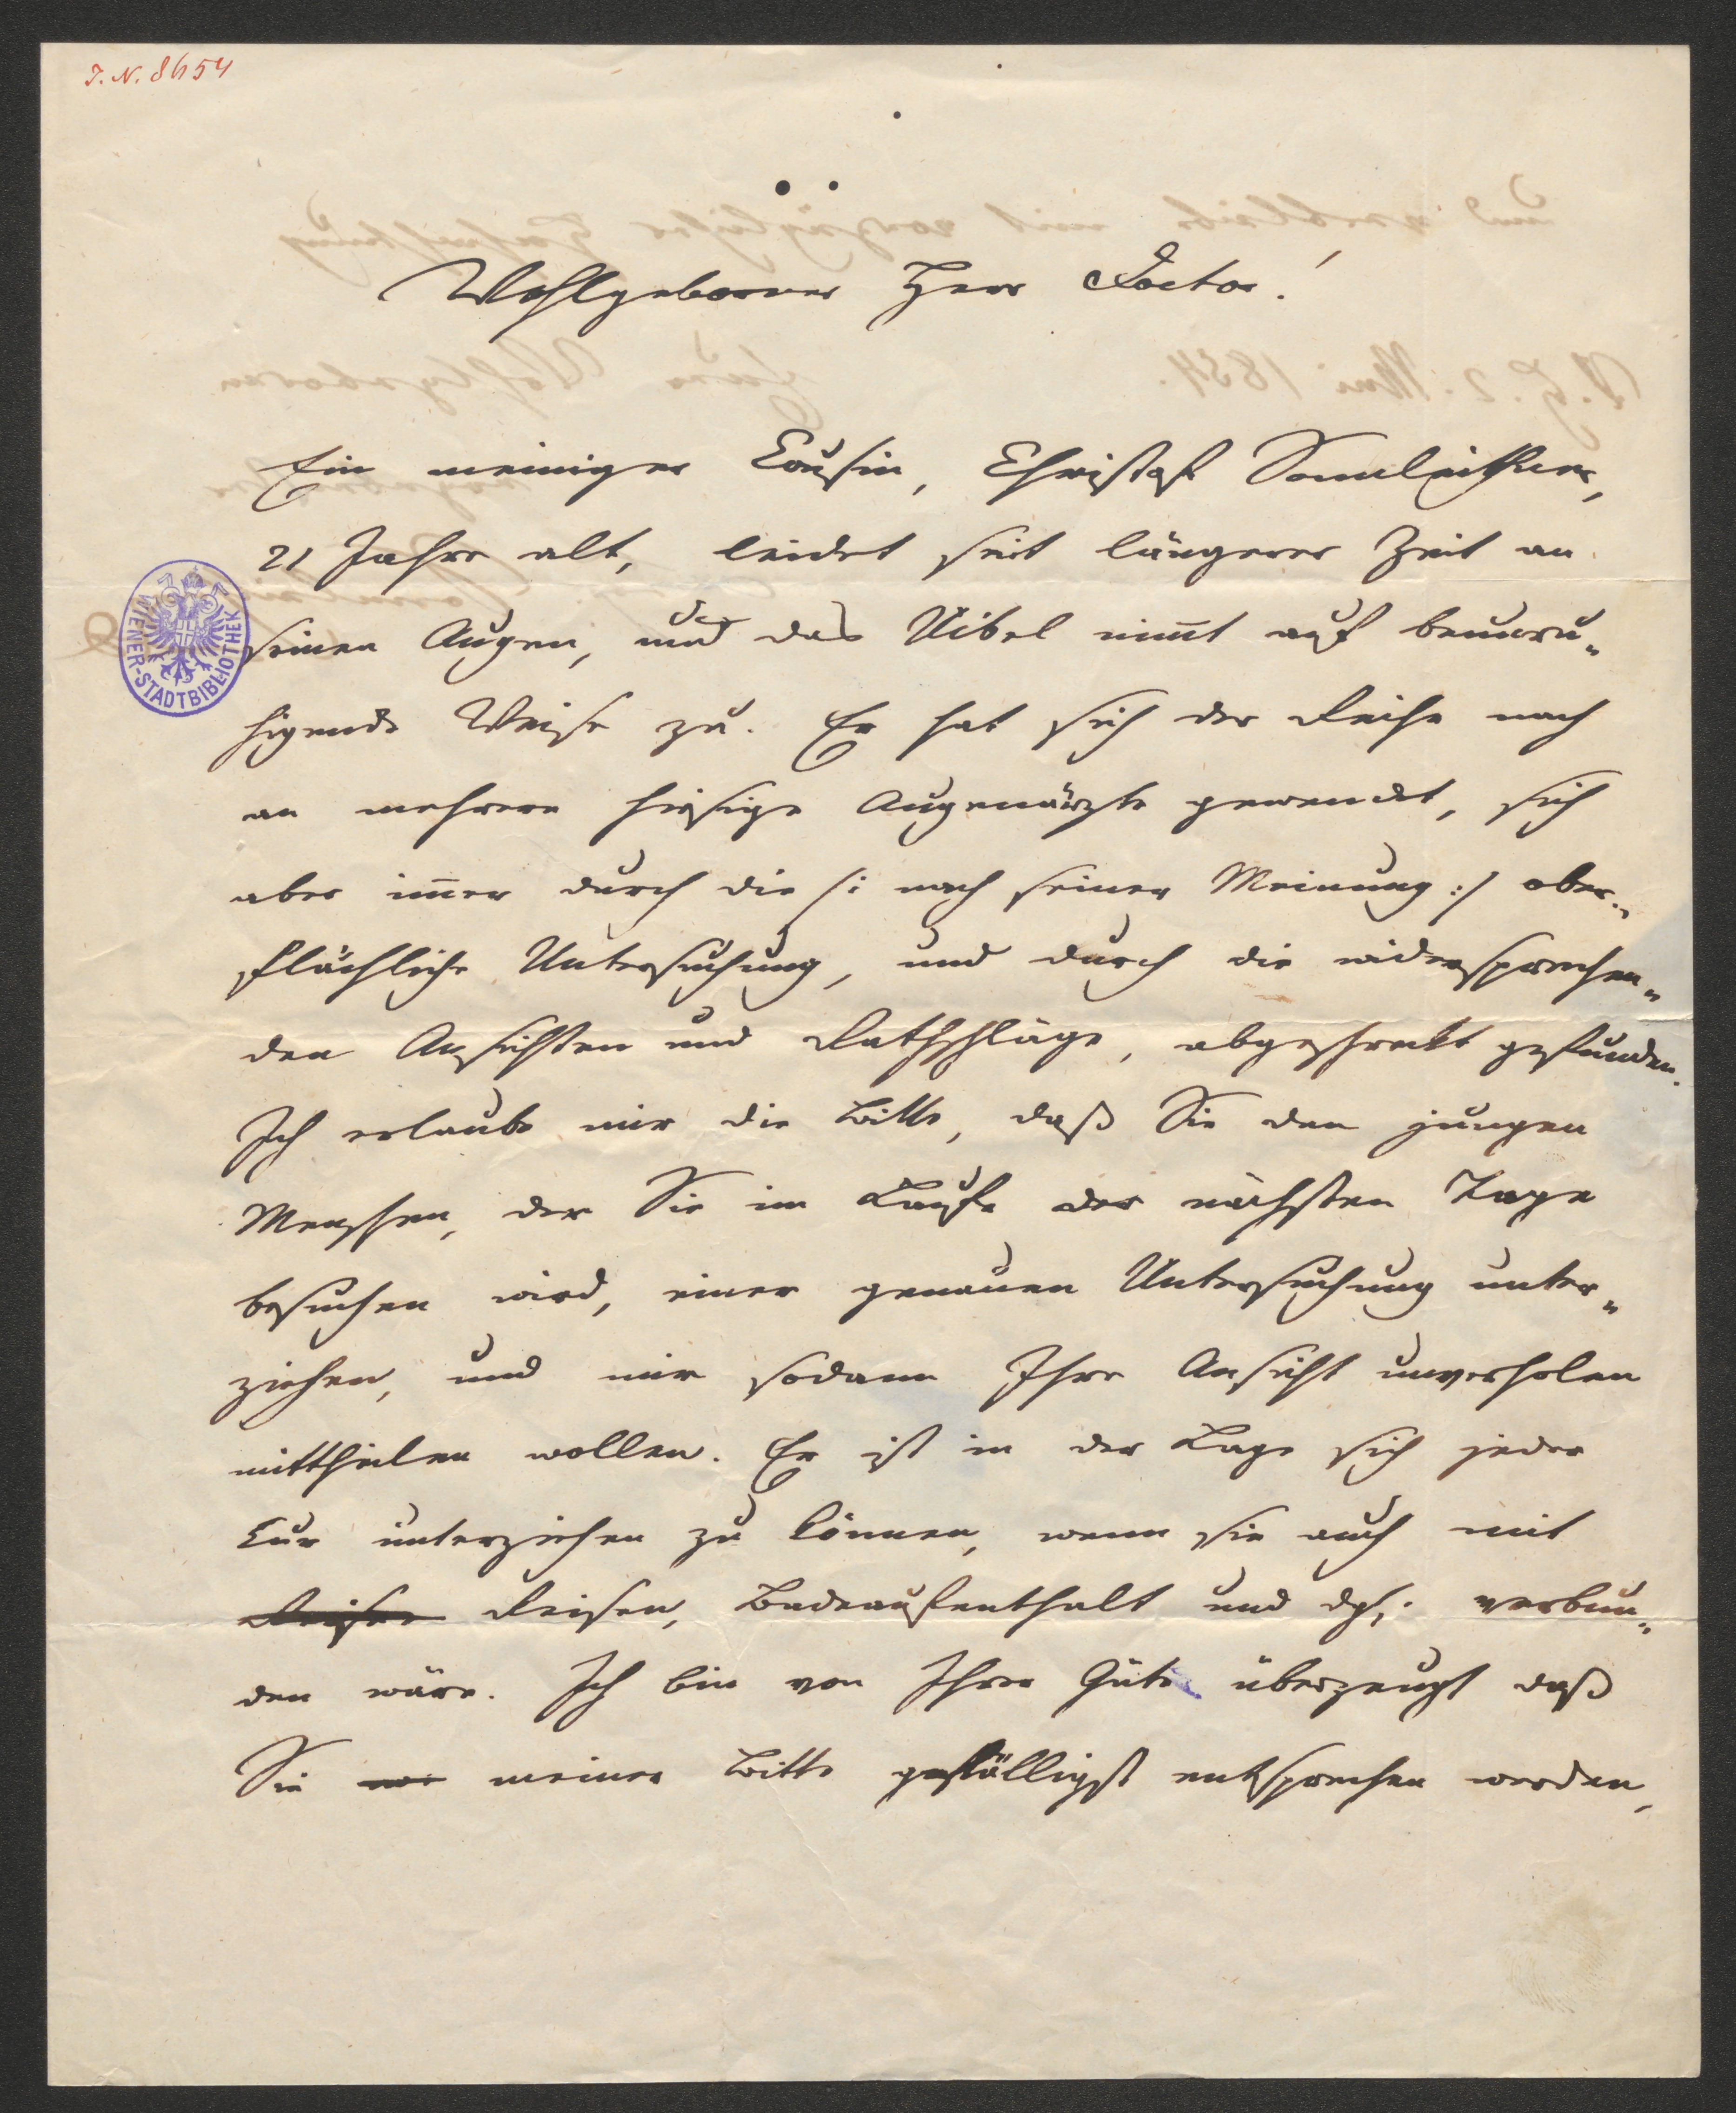 I. N. 8654
Wohlgeborner Herr Doctor!
Ein meiniger Cousin, Christof Sonnleithner,
21 Jahre alt, leidet seit längerer Zeit an
seinen Augen, und das Uibel nim̄t auf beunru„
higende Weise zu. Er hat sich der Reihe nach
an mehrere hiesige Augenärzte gewendet, sich
aber im̄er durch die /: nach seiner Meinung :/ ober„
flächliche Untersuchung, und durch die widersprechen„
den Ansichten und Rathschläge, abgeschreckt gefunden.
Ich erlaube mir die Bitte, daß Sie den jungen
Menschen, der Sie im Laufe der nächsten Tage
besuchen wird, einer genauen Untersuchung unter„
ziehen, und mir sodann Ihre Ansicht unverholen
mittheilen wollen. Er ist in der Lage sich jeder
Cur unterziehen zu können, wenn sie auch mit
Reisen Reisen, Badeaufenthalt und dgl. verbun„
den wäre. Ich bin von Ihrer Güte überzeugt daß
Sie meiner Bitte gefälligst entsprechen werden,
WIENER-STADTBIBLIOTHEK